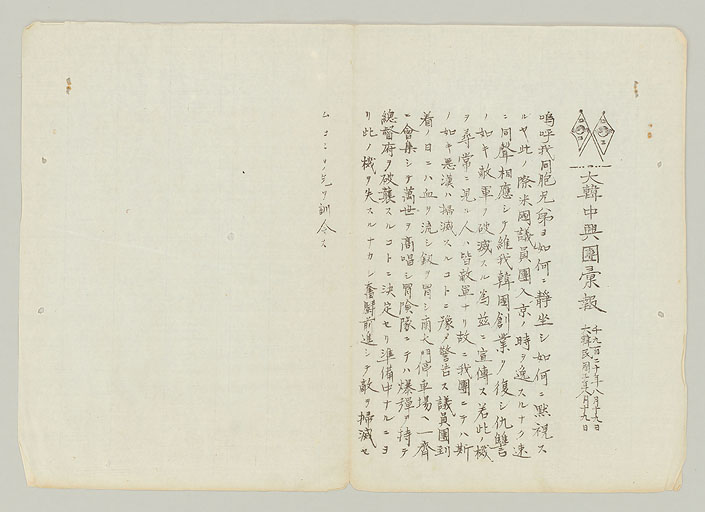 大韓中興團彙報
千九百二十年八月十九日
大韓民國二年八月十九日
嗚呼我同胞兄弟ヨ如何ニ靜坐シ如何ニ默視ス
ルヤ此ノ際米國議員團入京ノ時ヲ逸スルナク速
ニ同聲相應シテ維我韓國創業ヲ復シ仇讐
ノ如キ敵軍ヲ破滅スル爲玆ニ宣傳ス若此ノ機
ヲ尋常ニ見ル人ハ皆敵軍ナリ故ニ我團ニテハ斯
ノ如キ悪漢ハ掃滅スルコトニ豫メ警告ス議員團到
着ノ日ニハ血ヲ流シ釼ヲ冒シ南大門停車場ヘ一齊
ニ會集シテ萬世ヲ高唱シ冒險隊ニテハ爆彈ヲ持テ
總督府ヲ破襲スルコトニ決定セリ準備中ナルニヨ
リ此ノ機ヲ失スルナカレ奮鬪前進シテ敵ヲ掃滅セ
ムコトヲ先ツ訓令ス